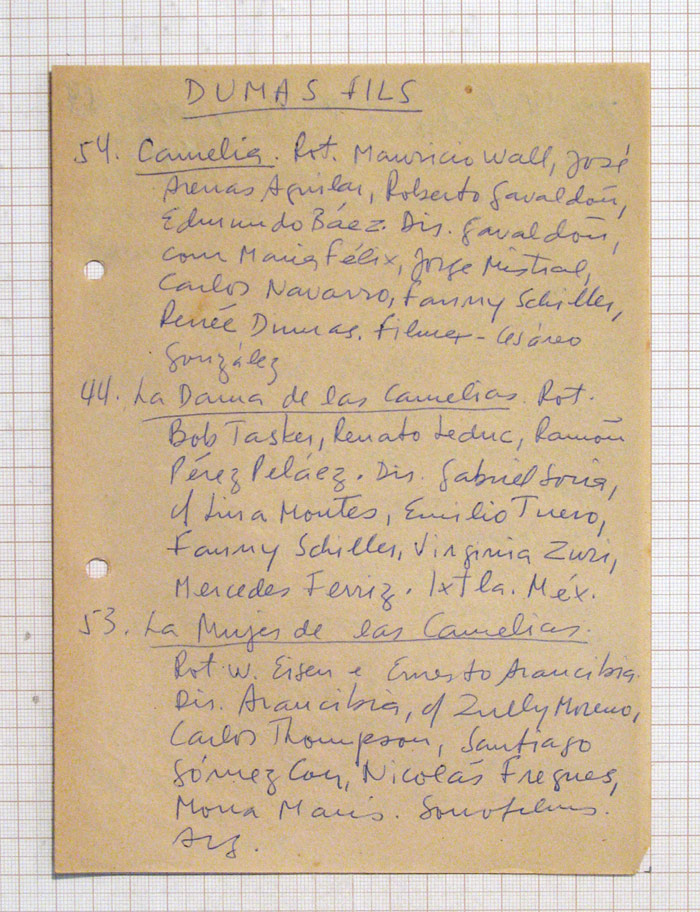 DUMAS FILS
54. Camelia. Rot. Mauricio Wall, José
Arenas Aguilar, Roberto Gavaldón,
Edmundo Báez. Dir. Gavaldón,
com Maria Félix, Jorge Mistral,
Carlos Navarro, Fanny Schiller,
Renée Dumas. Filmex - Cesáreo
González
44. La Dama de las Camelias. Rot.
Bob Tasker, Renato Leduc, Ramón
Pérez Peláez. Dir. Gabriel Soria,
c/ Lina Montes, Emilio Tuero,
Fanny Schiller, Virginia Zuri,
Mercedes Ferriz. Ixtla. Méx.
53. La Mujer de las Camelias.
Rot. W. Eisen e Ernesto Arancibia.
Dir. Arancibia, c/ Zully Moreno,
Carlos Thompson, Santiago
Gómez Cou, Nicolás Fregues,
Mona Maris. Sonofilms.
Arg.